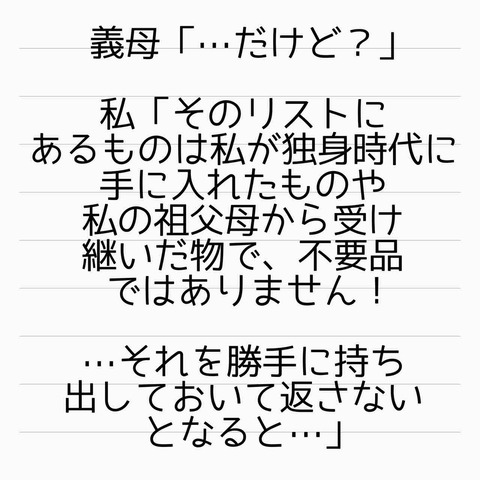 義母「…だけど？」
私「そのリストに
あるものは私が独身時代に
手に入れたものや
私の祖父母から受け
継いだ物で、不要品
ではありません！
…それを勝手に持ち
出しておいて返さない
となると…」